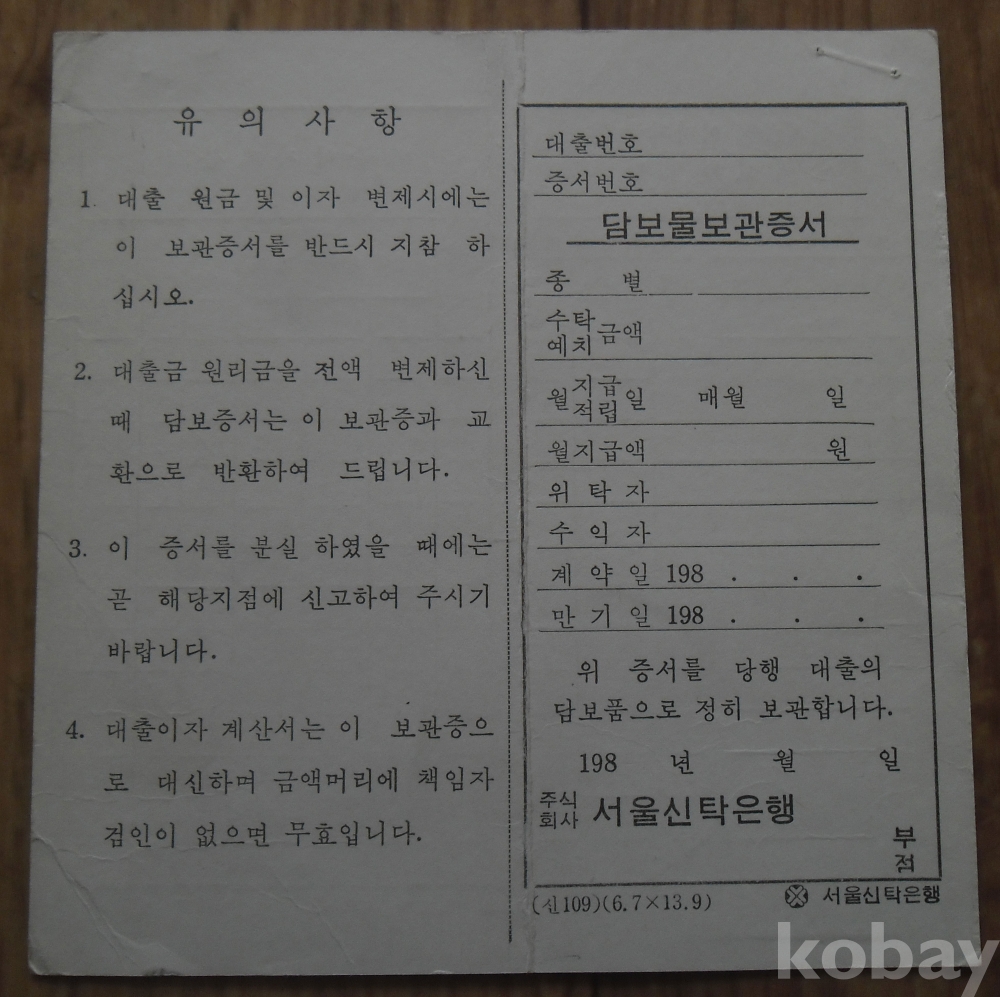 유 의 사 항
1. 대출 원금 및 이자 변제시에는
이 보관증서를 반드시 지참 하
십시오.
2. 대출금 원리금을 전액 변제하신
때 담보증서는 이 보관증과 교
환으로 반환하여 드립니다.
3. 이 증서를 분실 하였을 때에는
곧 해당지점에 신고하여 주시기
바랍니다.
4. 대출이자 계산서는 이 보관증으
로 대신하며 금액머리에 책임자
검인이 없으면 무효입니다.
대출번호
증서번호
담보물보관증서
종 별
수탁
예치 금액
월 지급
적립 일 매월 일
월지급액 원
위 탁 자
수 익 자
계 약 일 198 . . .
만 기 일 198 . . .
위 증서를 당행 대출의
담보품으로 정히 보관합니다.
198 년 월 일
주식
회사 서울신탁은행
부
점
(신109)(6.7×13.9)
서울신탁은행
kobay